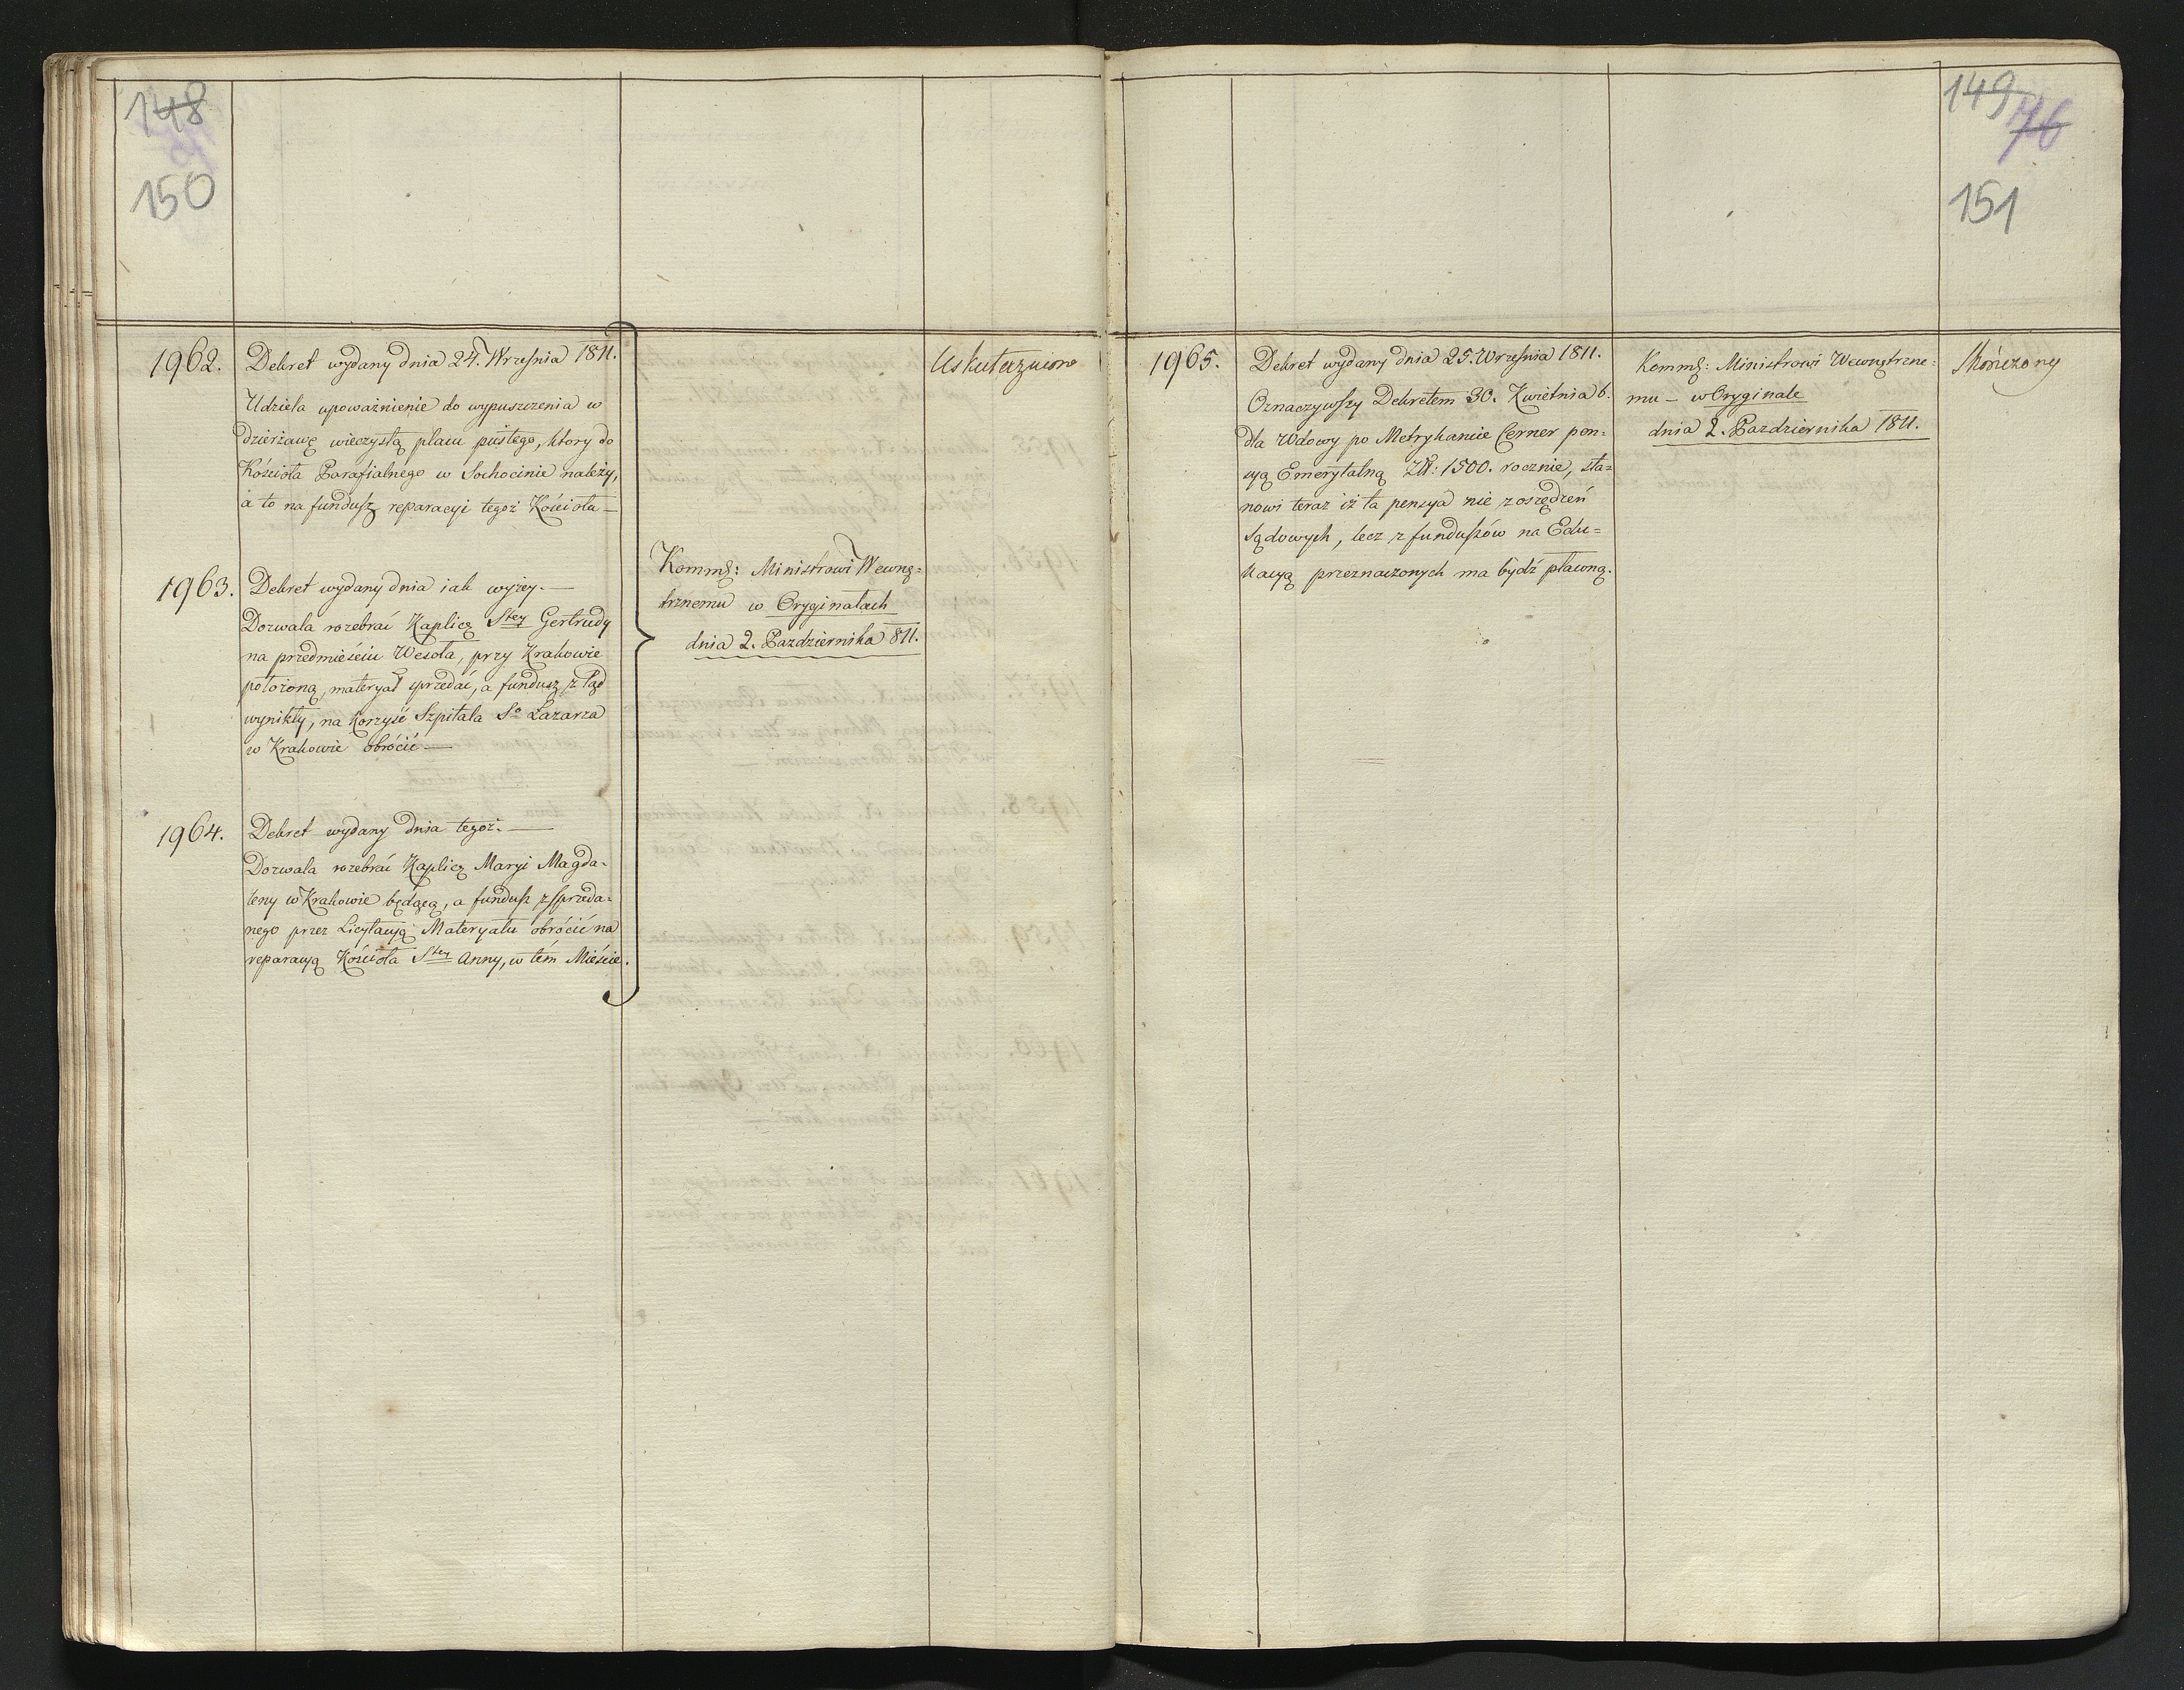 148
150
1962.
Dekret wydany dnia 24. Września 1811.
Udziela upoważnienie do wypuszczenia w
dzierżawę wieczystą placu pustego, ktory do
Kościoła Parafialnego w Sochocinie należy,
a to na fundusz reparacyi tegoż Kościoła —
1963.
Dekret wydany dnia iak wyżey. —
Dozwala rozebrać Kaplicę Stey Gertrudy
na przedmieściu Wesoła, przy Krakowie
położoną, materyał sprzedać, a fundusz z tąd
wynikły, na korzyść Szpitala So Łazarza
w Krakowie obrócić —
1964.
Dekret wydany dnia tegoż. —
Dozwala rozebrać Kaplicę Maryi Magda-
leny w Krakowie będącą, a fundusz z sprzeda-
nego przez Licytacyą Materyału obrócić na
reparacyą Kościoła Stey Anny, w tém Mieście.
Komms: Ministrowi Wewnę-
trznemu w Oryginałach
dnia 2. Pazdziernika 811.
Uskutecznione
149 76
151
1965.
Dekret wydany dnia 25. Września 1811.
Oznaczywszy Dekretem 30. Kwietnia b.
dla Wdowy po Metrykancie Cerner pen=
syą Emerytalną Zł: 1500. rocznie, sta=
nowi teraz iż ta pensya nie z oszędzeń
Sądowych, lecz z funduszów na Edu=
kacyą przeznaczonych ma bydź płaconą.
Komms: Ministrowi Wewnętrzne=
mu — w Oryginale
dnia 2. Pazdziernika 1811.
Skończony